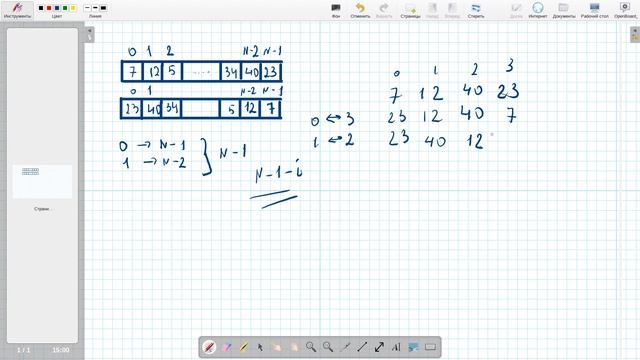 Инструменты
Цвет
Линия
Фон
Отменить
Вернуть
Страницы
Назад
Вперед
Стереть
Доска
Интернет
Документы
Рабочий стол
OpenBoard
0 1 2 N-2 N-1
7 12 5 ..... 34 40 23
0 1 N-2 N-1
23 40 34 5 12 7
0 → N-1
1 → N-2
} N-1
N-1-i
0 1 2 3
7 12 40 23
0 ↔ 3 23 12 40 7
1 ↔ 2 23 40 12
Страни...
1 / 1 15:00